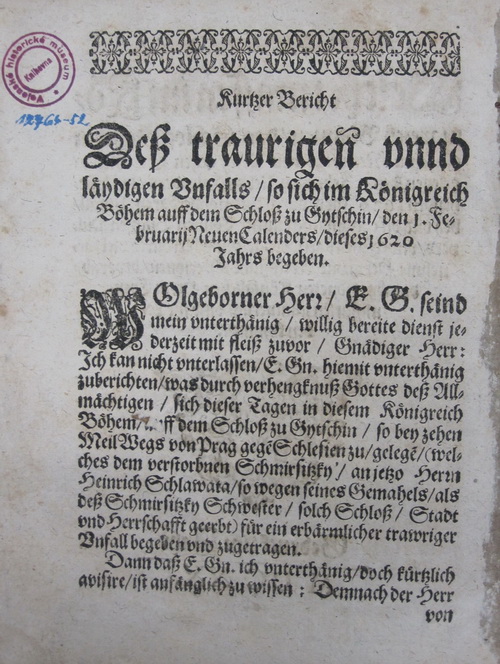 Vojenské historické museum
Knihovna
12763-52
Kurtzer Bericht
Deß traurigen̄ vnnd
läydigen Vnfalls / so sich im Königreich
Böhem auff dem Schloß zu Gytschin / den 1. Fe-
bruarij Neuen Calenders / dieses 1620
Jahrs begeben.
WOlgeborner Herr / E. G. seind
mein vnterthänig / willig bereite dienst je-
derzeit mit fleiß zuvor / Gnädiger Herr:
Ich kan nicht vnterlassen / E. Gn. hiemit vnterthänig
zuberichten / was durch verhengknuß Gottes deß All-
mächtigen / sich dieser Tagen in diesem Königreich
Böhem / ff dem Schloß zu Gytschin / so bey zehen
Meil Wegs von Prag gegē Schlesien zu / gelegē / (wel-
ches dem verstorbnen Schmirsitzky / anjetzo Herrn
Heinrich Schlawata / so wegen seines Gemahels / als
deß Schmirsitzky Schwester / solch Schloß / Stadt
vnd Herrschafft geerbt) für ein erbärmlicher trawriger
Vnfall begeben vnd zugetragen.
Dann daß E. Gn. ich vnterthänig / doch kürtzlich
avisire / ist anfänglich zu wissen : Demnach der Herr
von